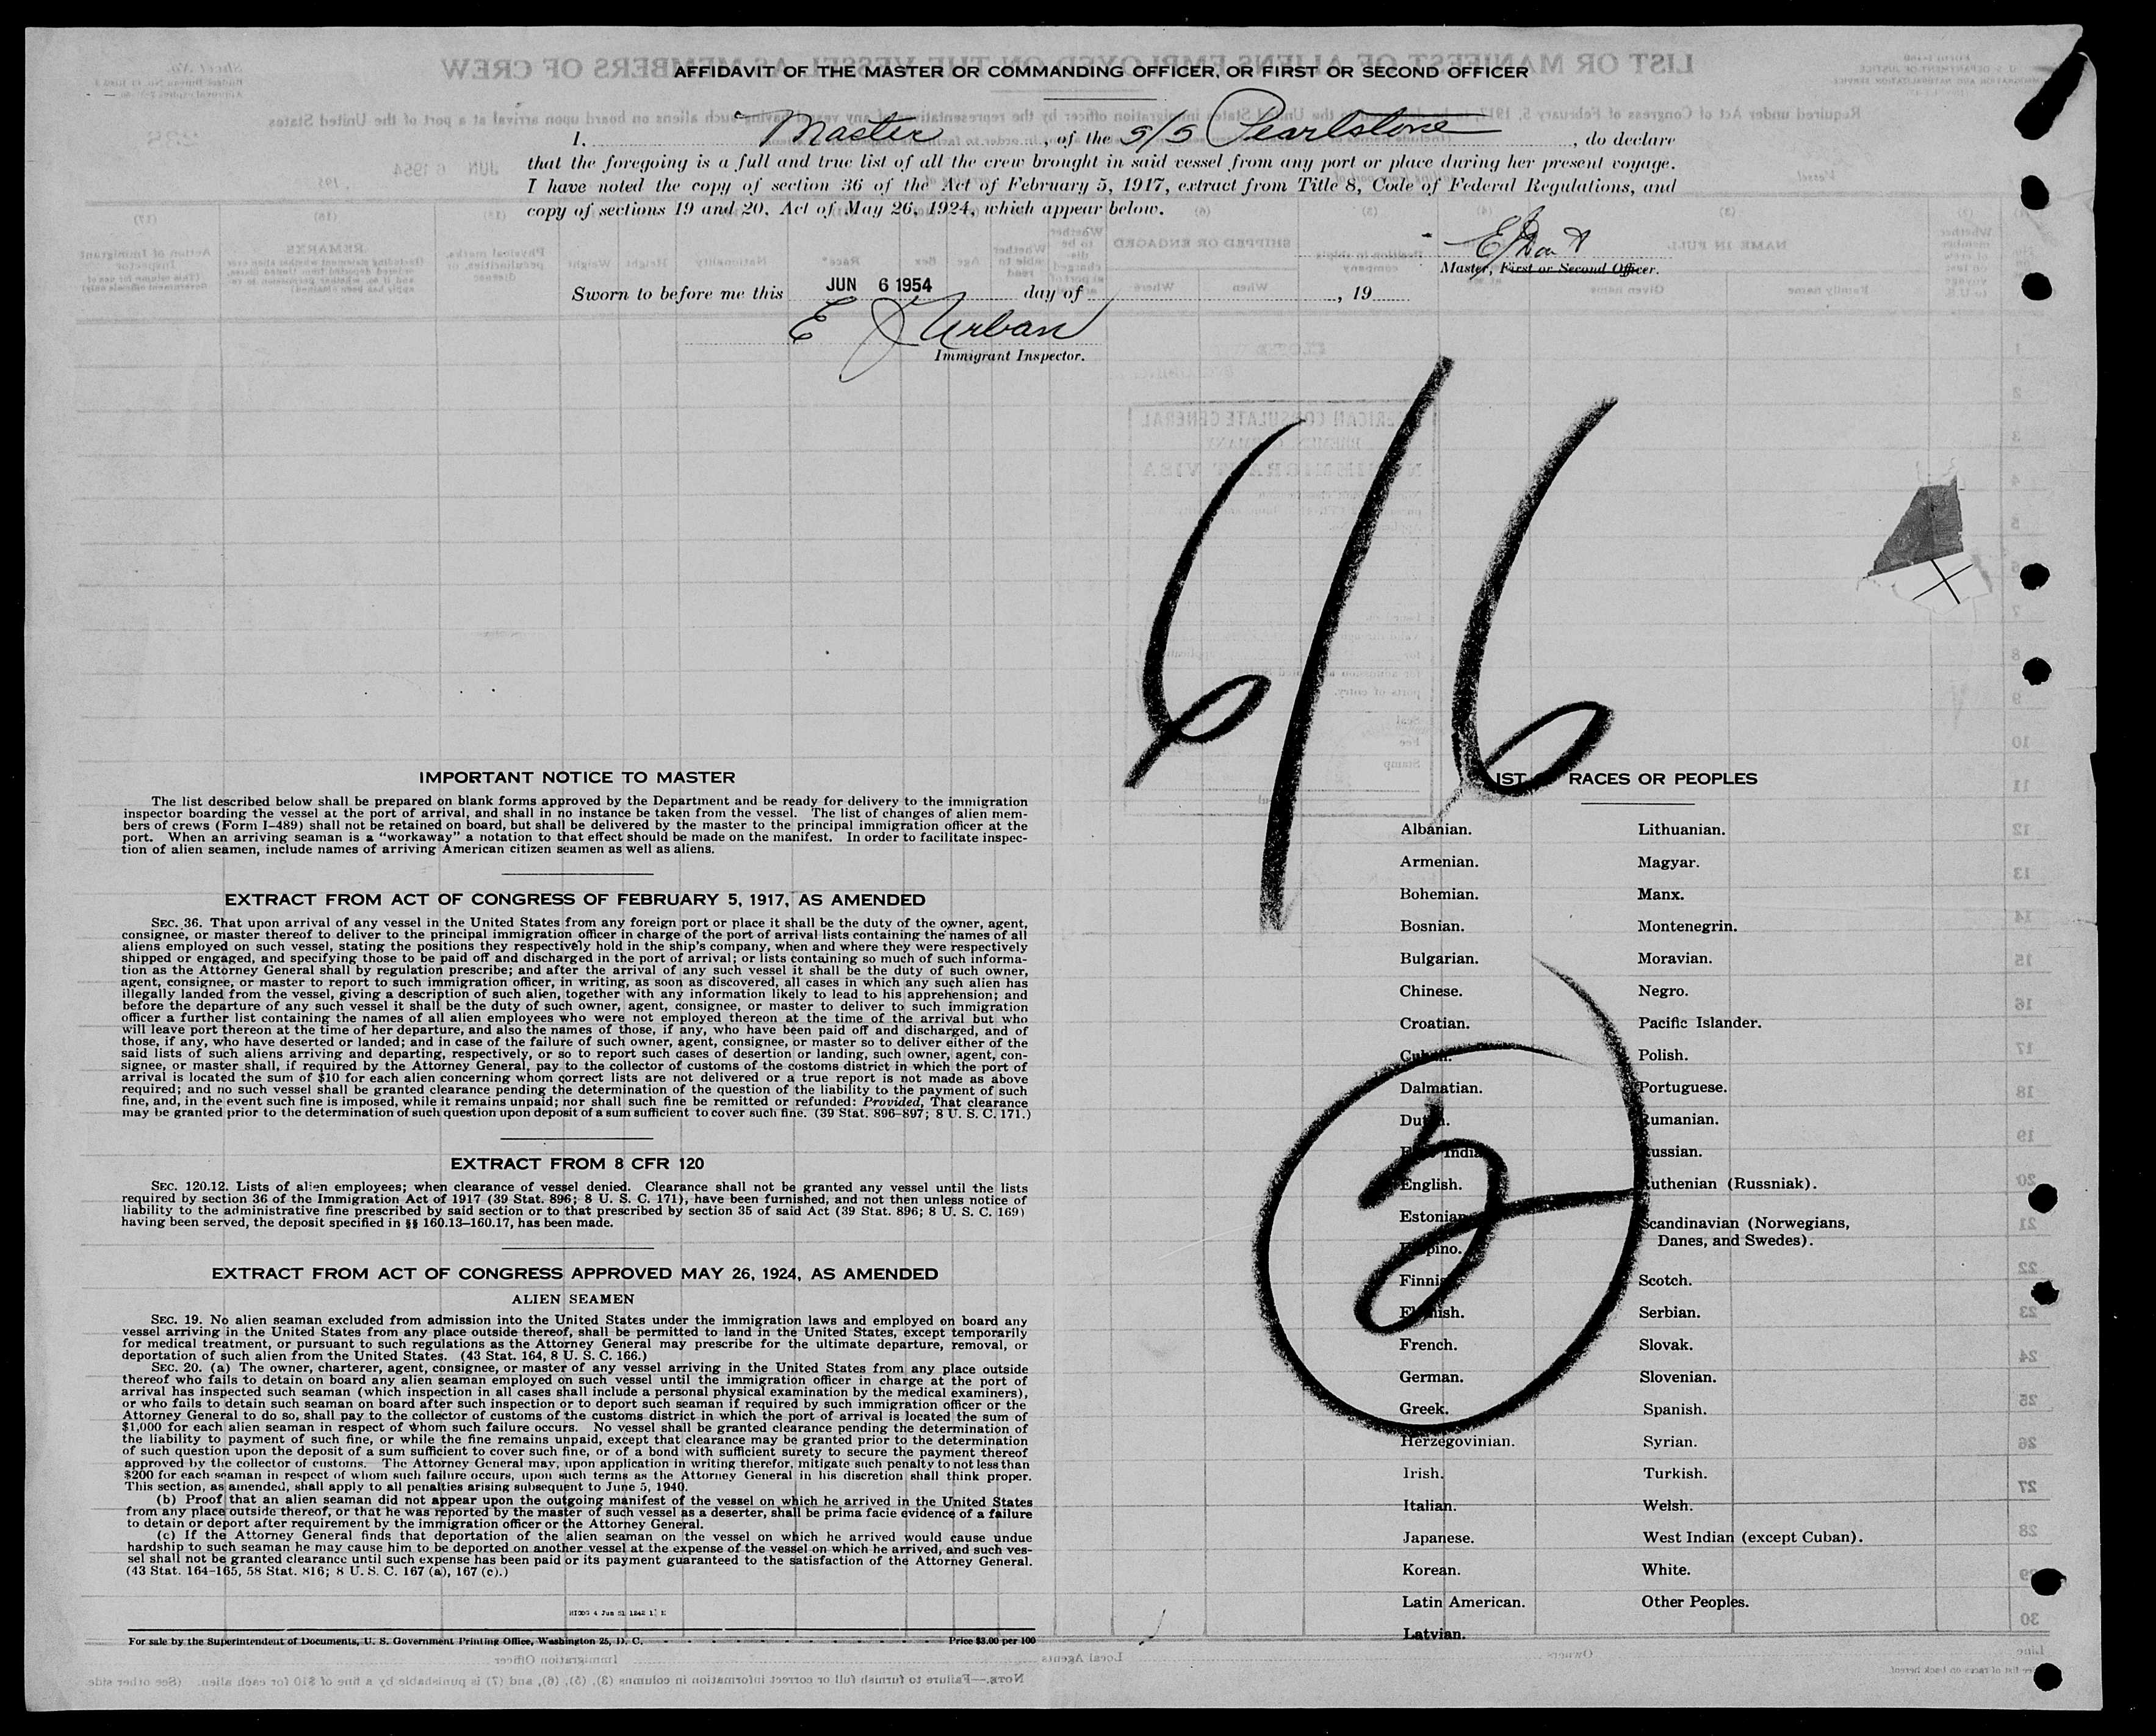 AFFIDAVIT OF THE MASTER OR COMMANDING OFFICER, OR FIRST OR SECOND OFFICER
I, Master, of the S/S Pearlstone, do declare
that the foregoing is a full and true list of all the crew brought in said vessel from any port or place during her present voyage.
I have noted the copy of section 36 of the Act of February 5, 1917, extract from Title 8, Code of Federal Regulations, and
copy of sections 19 and 20, Act of May 26, 1924, which appear below.
Master, First or Second Officer.
Sworn to before me this JUN 6 1954 day of , 19
E J Urban
Immigrant Inspector.
6/6
2
IMPORTANT NOTICE TO MASTER
The list described below shall be prepared on blank forms approved by the Department and be ready for delivery to the immigration
inspector boarding the vessel at the port of arrival, and shall in no instance be taken from the vessel. The list of changes of alien mem-
bers of crews (Form I-489) shall not be retained on board, but shall be delivered by the master to the principal immigration officer at the
port. When an arriving seaman is a "workaway" a notation to that effect should be made on the manifest. In order to facilitate inspec-
tion of alien seamen, include names of arriving American citizen seamen as well as aliens.
EXTRACT FROM ACT OF CONGRESS OF FEBRUARY 5, 1917, AS AMENDED
SEC. 36. That upon arrival of any vessel in the United States from any foreign port or place it shall be the duty of the owner, agent,
consignee, or master thereof to deliver to the principal immigration officer in charge of the port of arrival lists containing the names of all
aliens employed on such vessel, stating the positions they respectively hold in the ship's company, when and where they were respectively
shipped or engaged, and specifying those to be paid off and discharged in the port of arrival; or lists containing so much of such informa-
tion as the Attorney General shall by regulation prescribe; and after the arrival of any such vessel it shall be the duty of such owner,
agent, consignee, or master to report to such immigration officer, in writing, as soon as discovered, all cases in which any such alien has
illegally landed from the vessel, giving a description of such alien, together with any information likely to lead to his apprehension; and
before the departure of any such vessel it shall be the duty of such owner, agent, consignee, or master to deliver to such immigration
officer a further list containing the names of all alien employees who were not employed thereon at the time of the arrival but who
will leave port thereon at the time of her departure, and also the names of those, if any, who have been paid off and discharged, and of
those, if any, who have deserted or landed; and in case of the failure of such owner, agent, consignee, or master so to deliver either of the
said lists of such aliens arriving and departing, respectively, or so to report such cases of desertion or landing, such owner, agent, con-
signee, or master shall, if required by the Attorney General, pay to the collector of customs of the costoms district in which the port of
arrival is located the sum of $10 for each alien concerning whom correct lists are not delivered or a true report is not made as above
required; and no such vessel shall be granted clearance pending the determination of the question of the liability to the payment of such
fine, and, in the event such fine is imposed, while it remains unpaid; nor shall such fine be remitted or refunded: Provided, That clearance
may be granted prior to the determination of such question upon deposit of a sum sufficient to cover such fine. (39 Stat. 896-897; 8 U. S. C. 171.)
EXTRACT FROM 8 CFR 120
SEC. 120.12. Lists of alien employees; when clearance of vessel denied. Clearance shall not be granted any vessel until the lists
required by section 36 of the Immigration Act of 1917 (39 Stat. 896; 8 U. S. C. 171), have been furnished, and not then unless notice of
liability to the administrative fine prescribed by said section or to that prescribed by section 35 of said Act (39 Stat. 896; 8 U. S. C. 169)
having been served, the deposit specified in §§ 160.13-160.17, has been made.
EXTRACT FROM ACT OF CONGRESS APPROVED MAY 26, 1924, AS AMENDED
ALIEN SEAMEN
SEC. 19. No alien seaman excluded from admission into the United States under the immigration laws and employed on board any
vessel arriving in the United States from any place outside thereof, shall be permitted to land in the United States, except temporarily
for medical treatment, or pursuant to such regulations as the Attorney General may prescribe for the ultimate departure, removal, or
deportation of such alien from the United States. (43 Stat. 164, 8 U. S. C. 166.)
SEC. 20. (a) The owner, charterer, agent, consignee, or master of any vessel arriving in the United States from any place outside
thereof who fails to detain on board any alien seaman employed on such vessel until the immigration officer in charge at the port of
arrival has inspected such seaman (which inspection in all cases shall include a personal physical examination by the medical examiners),
or who fails to detain such seaman on board after such inspection or to deport such seaman if required by such immigration officer or the
Attorney General to do so, shall pay to the collector of customs of the customs district in which the port of arrival is located the sum of
$1,000 for each alien seaman in respect of whom such failure occurs. No vessel shall be granted clearance pending the determination of
the liability to the payment of such fine, or while the fine remains unpaid, except that clearance may be granted prior to the determination
of such question upon the deposit of a sum sufficient to cover such fine, or of a bond with sufficient surety to secure the payment thereof
approved by the collector of customs. The Attorney General may, upon application in writing therefor, mitigate such penalty to not less than
$200 for each seaman in respect of whom such failure occurs, upon such terms as the Attorney General in his discretion shall think proper.
This section, as amended, shall apply to all penalties arising subsequent to June 5, 1940.
(b) Proof that an alien seaman did not appear upon the outgoing manifest of the vessel on which he arrived in the United States
from any place outside thereof, or that he was reported by the master of such vessel as a deserter, shall be prima facie evidence of a failure
to detain or deport after requirement by the immigration officer or the Attorney General.
(c) If the Attorney General finds that deportation of the alien seaman on the vessel on which he arrived would cause undue
hardship to such seaman he may cause him to be deported on another vessel at the expense of the vessel on which he arrived, and such ves-
sel shall not be granted clearance until such expense has been paid or its payment guaranteed to the satisfaction of the Attorney General.
(43 Stat. 164-165, 58 Stat. 816; 8 U. S. C. 167 (a), 167 (c).)
For sale by the Superintendent of Documents, U. S. Government Printing Office, Washington 25, D. C. - - - - - - - - - Price $3.00 per 100
LIST OF RACES OR PEOPLES
Albanian.
Armenian.
Bohemian.
Bosnian.
Bulgarian.
Chinese.
Croatian.
Cuban.
Dalmatian.
Dutch.
East Indian.
English.
Estonian.
Filipino.
Finnish.
Flemish.
French.
German.
Greek.
Herzegovinian.
Irish.
Italian.
Japanese.
Korean.
Latin American.
Latvian.
Lithuanian.
Magyar.
Manx.
Montenegrin.
Moravian.
Negro.
Pacific Islander.
Polish.
Portuguese.
Rumanian.
Russian.
Ruthenian (Russniak).
Scandinavian (Norwegians,
Danes, and Swedes).
Scotch.
Serbian.
Slovak.
Slovenian.
Spanish.
Syrian.
Turkish.
Welsh.
West Indian (except Cuban).
White.
Other Peoples.